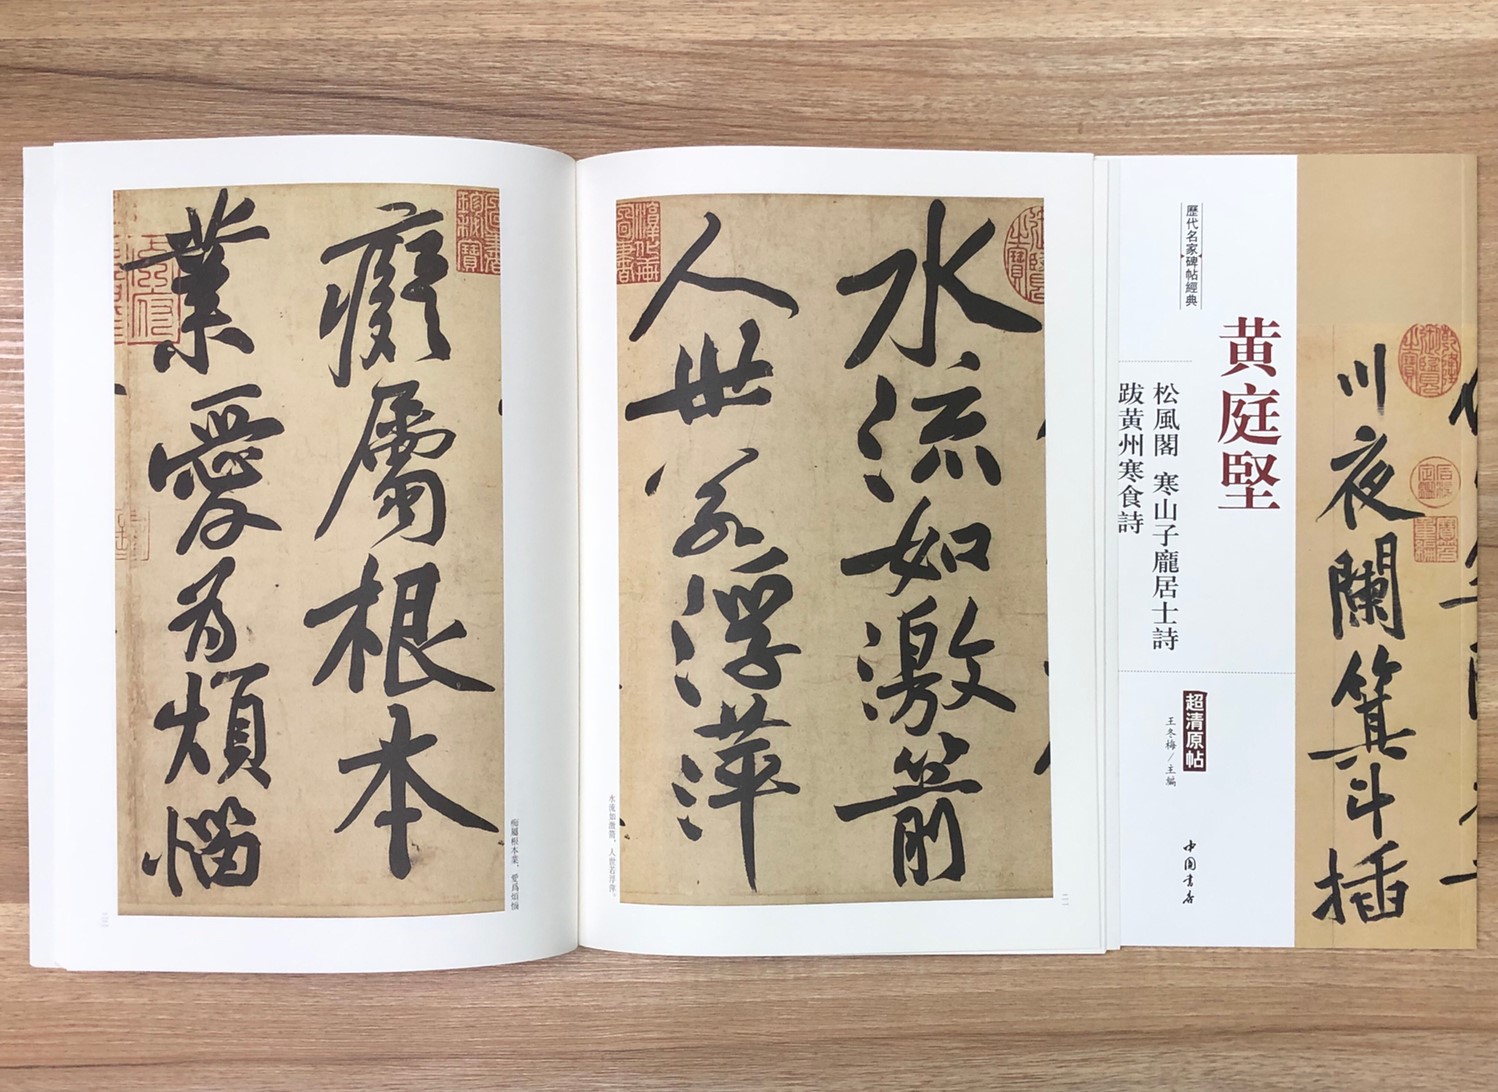 歷代名家碑帖經典
黄庭堅
松風閣 寒山子龐居士詩
跋黄州寒食詩
超清原帖
王冬梅/主編
中國書店
川夜闌箕斗插
水流如激箭
人世若浮萍
水流如激箭，人世若浮萍。
癡屬根本
業愛為煩惱
痴屬根本業，愛爲煩惱